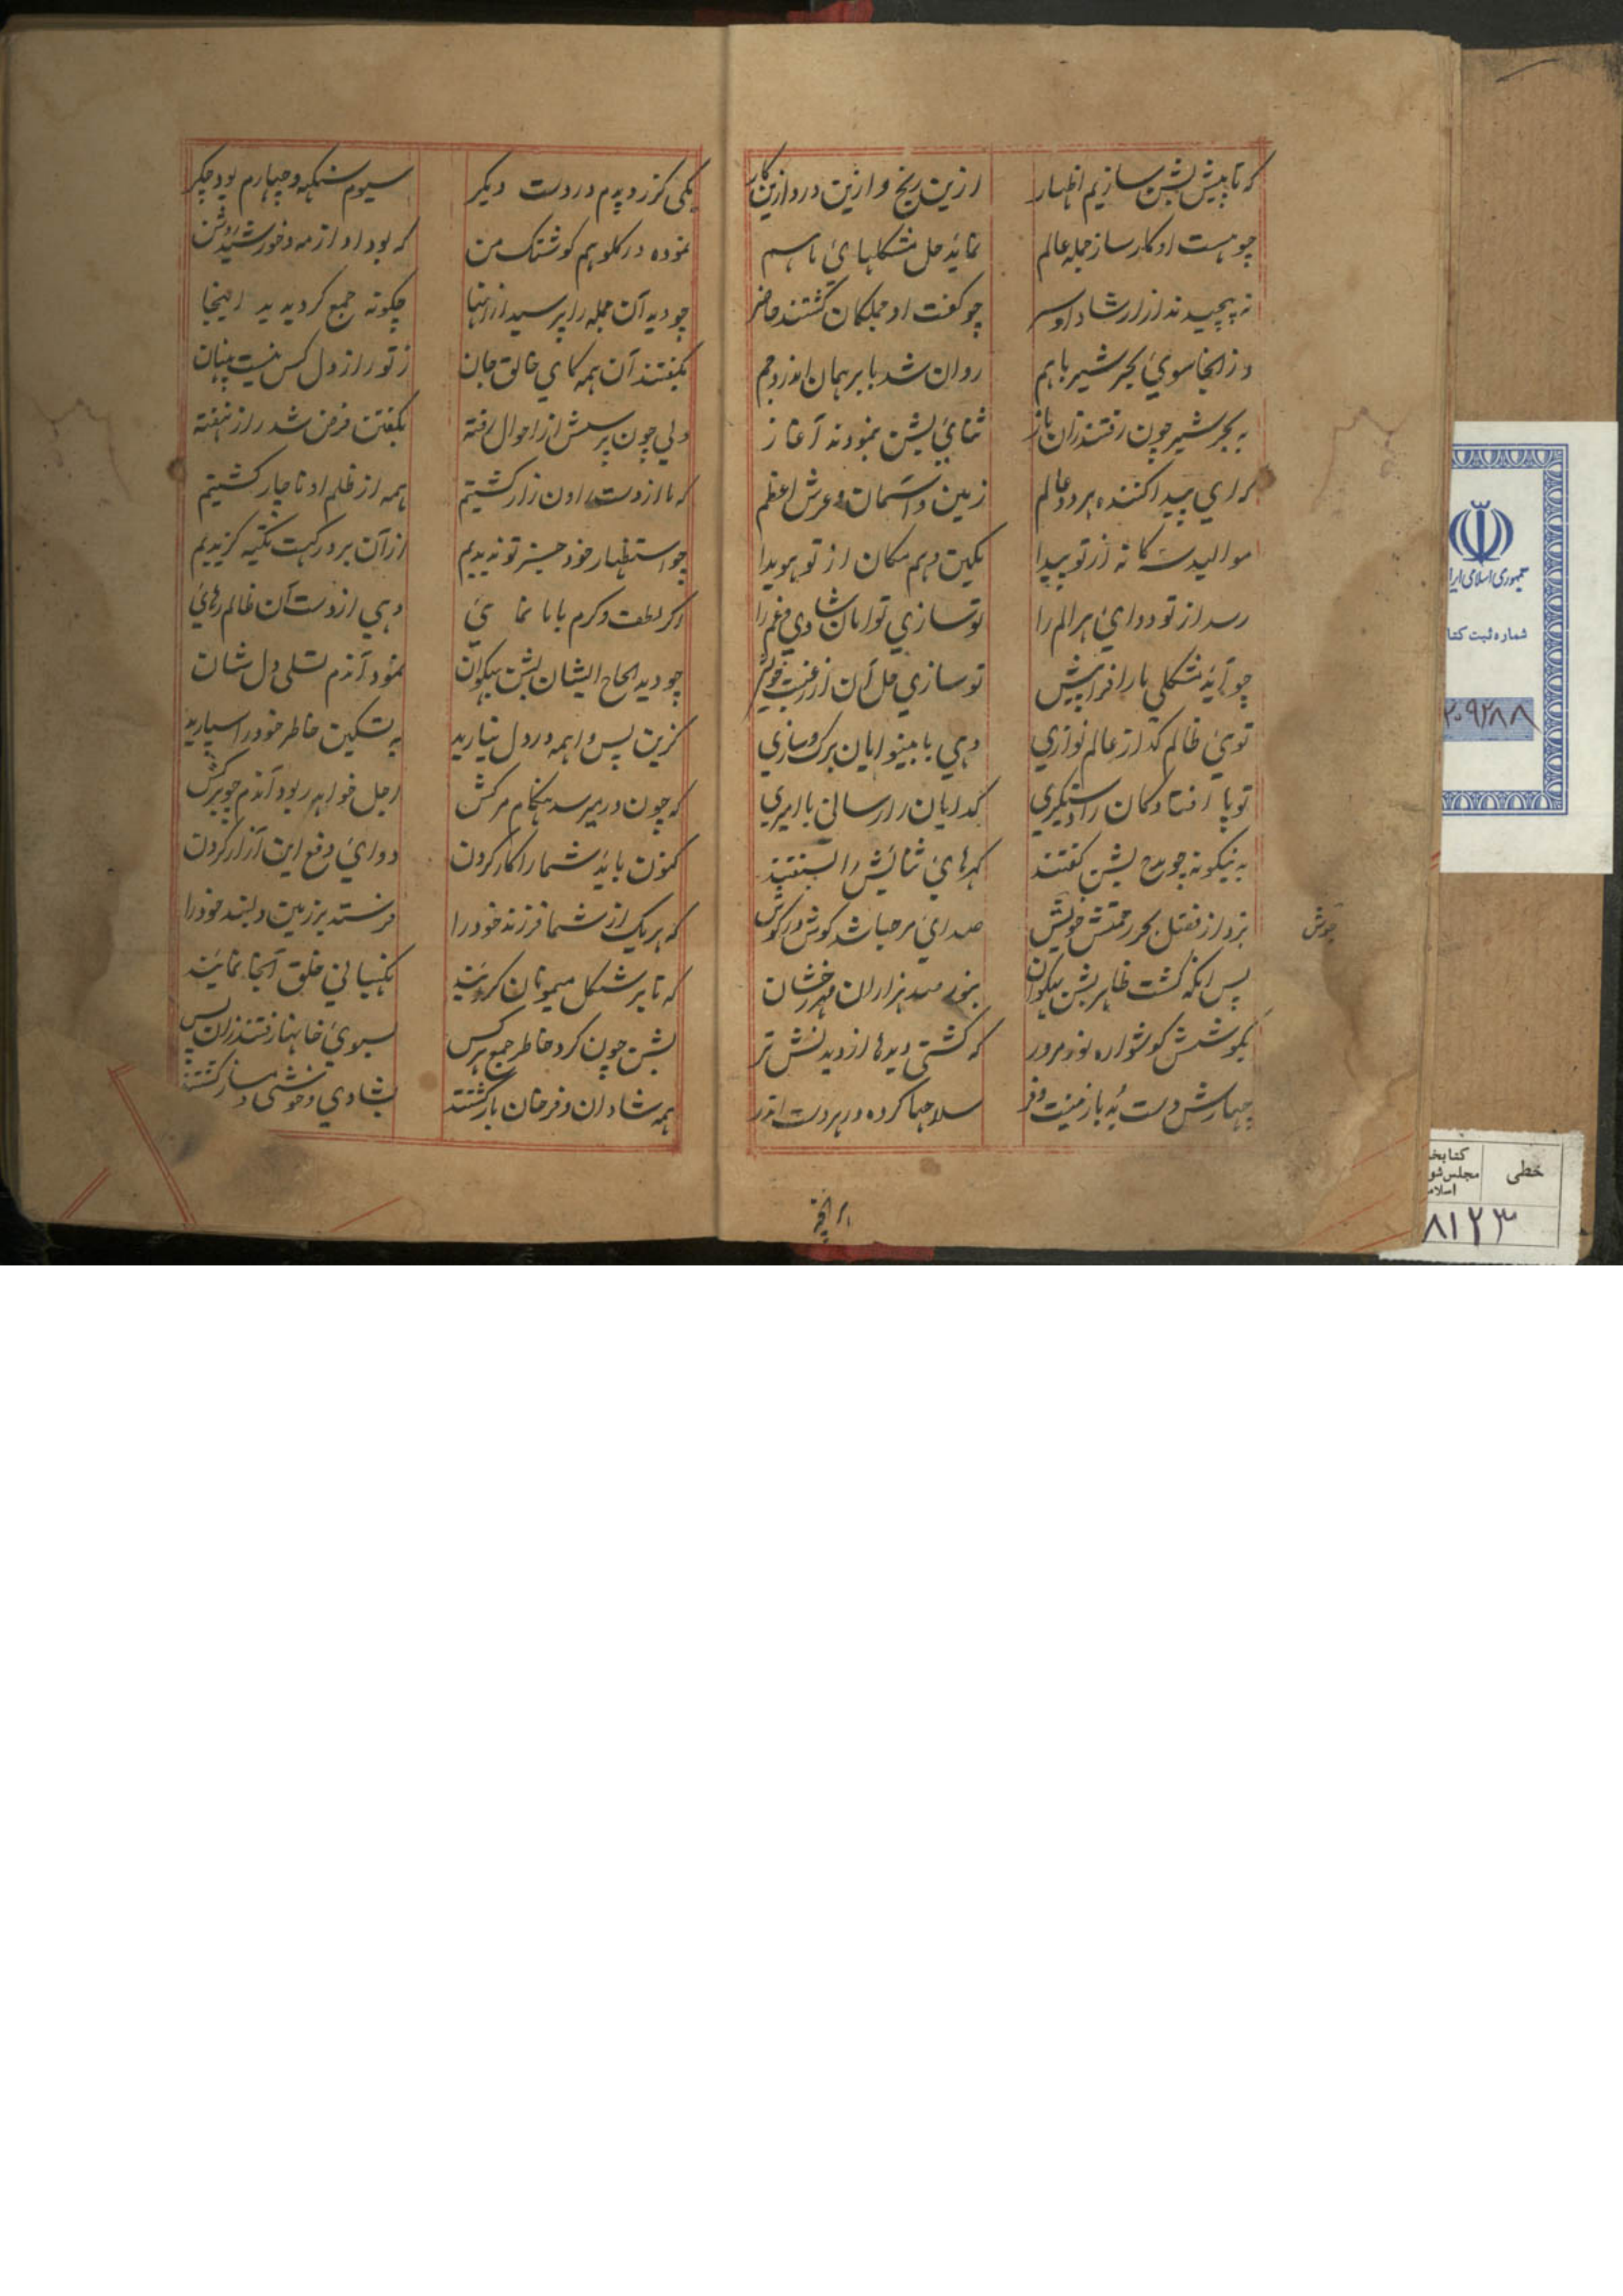 که تا پیش بشن سازیم اظهار ازین رنج و ازین درد و ازین کار
چو هست او کارساز جمله عالم نماید حل مشکلهای ما هم
نه پیچیدند از ارشاد او سر چو گفت او جملگان گشتند حاضر
وز انجا سوی بحر شیر با هم روان شد با برهمان اندر دم
به بحر شیر چون رفتند زان باز ثنای بشن نمودند آغاز
که ای پیدا کننده هر دو عالم زمین و آسمان و عرش اعظم
موالید سه کانه از تو پیدا مکین و هم مکان از تو هویدا
رسد از تو دوای هر الم را تو سازی توامان شادی و غم را
چو آید مشکلی ما را فرا پیش تو سازی حل آن از خویش
توی ظالم گداز عالم نوازی دهی با بینوایان برک و سازی
تو پا افتادگان را دستگیری گدایان را رسانی با امیری
به نیکونه چو مدح بشن گفتند گهرهای ثنایش را بسفتند
بزد از فضل بحر رحمتش جوش صدای مرحبا شد گوش در گوش
جوش
پس انکه گشت ظاهر بشن بهکوان بنور صد هزاران مهر رخشان
بگوشش گوشواره نور که گشتی دیدها از دیدنش تر
چهارش دست به با زینت و فر سلاحها کرده در هر دست اندر
یکی گرز و پدم در دست دیگر سیوم سنکهه و چهارم بود چکر
نموده در گلو هم کوشتک من که بود او از مه و خورشید روشن
چو دید آن جمله را پرسید ازانها چگونه جمع گردیدید اینجا
بگفتند آن همه کای خالق جان ز تو راز دل کس نیست پنهان
ولی چون پرسش از احوال رفته بگفتن فرض شد راز نهفته
که ما از دست راون زار گشتیم همه از ظلم او ناچار گشتیم
چو استظهار خود جز تو ندیدیم ازان بر درکهت تکیه گزیدیم
اگر لطف و کرم با ما نمائی دهی از دست آن ظالم رهائی
چو دید الحاح ایشان بشن بهکوان نمود آندم تسلی دل شان
کزین پس واهمه در دل نیارید به تسکین خاطر خود را سپارید
که چون در میرسد هنگام مرگش اجل خواهد ربود آندم چو برگش
کنون باید شما را کار کردن دوای دفع این آزار کردن
که هر یک از شما فرزند خود را فرستد بر زمین دلبند خود را
که تا بر شکل میمونان نگهبانی خلق آنجا نمایند
بشن چون کرد خاطر جمع هر کس بسوی خانها رفتند زان پس
همه شادان و فرحان باز گشتند بشادی و خوشی دمساز گشتند
جمهوری اسلامی ایران
شماره ثبت کتاب
۲۰۹۲۸۸
خطی
کتابخانه
مجلس شورای
اسلامی
۸۱۲۳